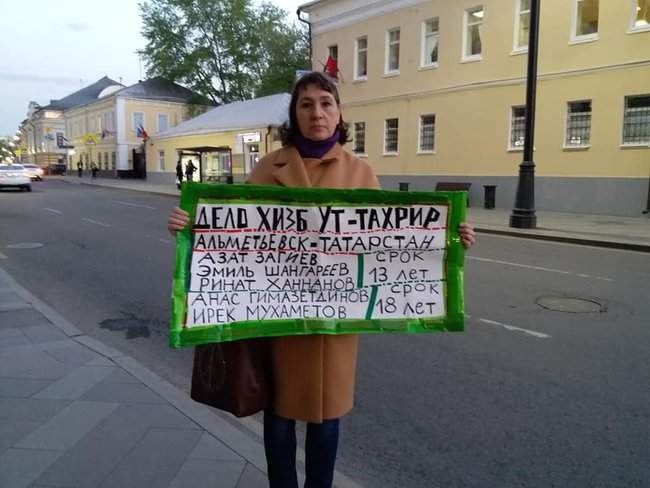 ДЕЛО ХИЗБ УТ-ТАХРИР
АЛЬМЕТЬЕВСК-ТАТАРСТАН
АЗАТ ЗАГИЕВ
ЭМИЛЬ ШАНГАРЕЕВ
РИНАТ ХАННАНОВ
СРОК
13 ЛЕТ
АНАС ГИМАЗЕТДИНОВ
ИРЕК МУХАМЕТОВ
СРОК
18 ЛЕТ